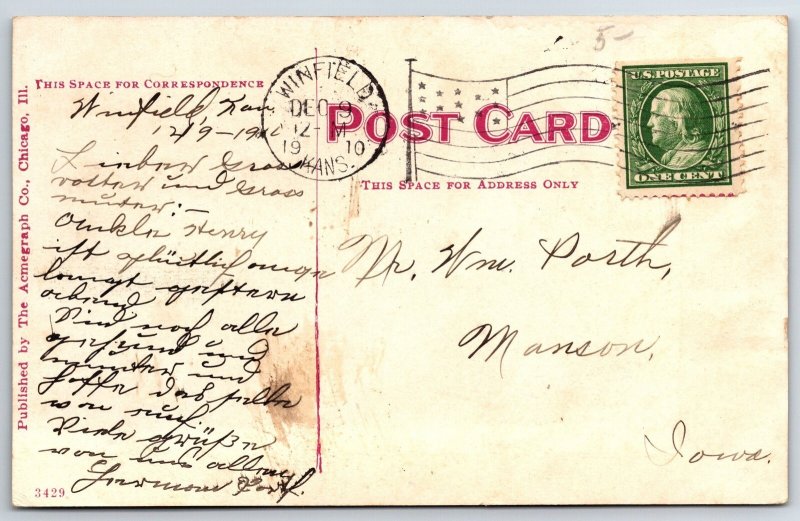 5-
THIS SPACE FOR CORRESPONDENCE
POST CARD
THIS SPACE FOR ADDRESS ONLY
WINFIELD
DEC 9
12-M
1910
KANS.
U.S. POSTAGE
ONE CENT
Published by The Acmegraph Co., Chicago, Ill.
3429
Winfield, Kan
12/9-1910
Lieber Gross
votter und Gross
muter:-
Onkle Henry
ist glücklich ange
komgt gestern
abend
Sind noch alle
gesund und
munter und
hoffe das selbe
von euch
Viele grüße
von uns allen
Herman
Mr. Wm. Porth,
Manson,
Iowa.